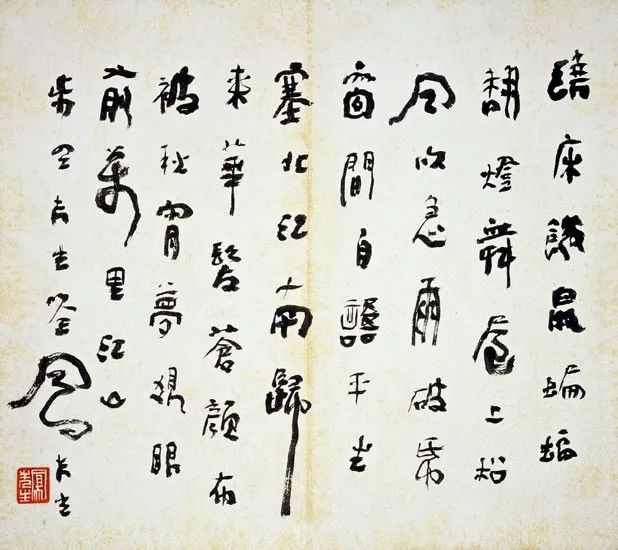 繞床饑鼠蝙蝠
翻燈舞屋上松
風吹急雨破紙
窗間自語平生
塞北江南歸
來華髮蒼顏布
被秋宵夢覺眼
前萬里江山
先生
先生